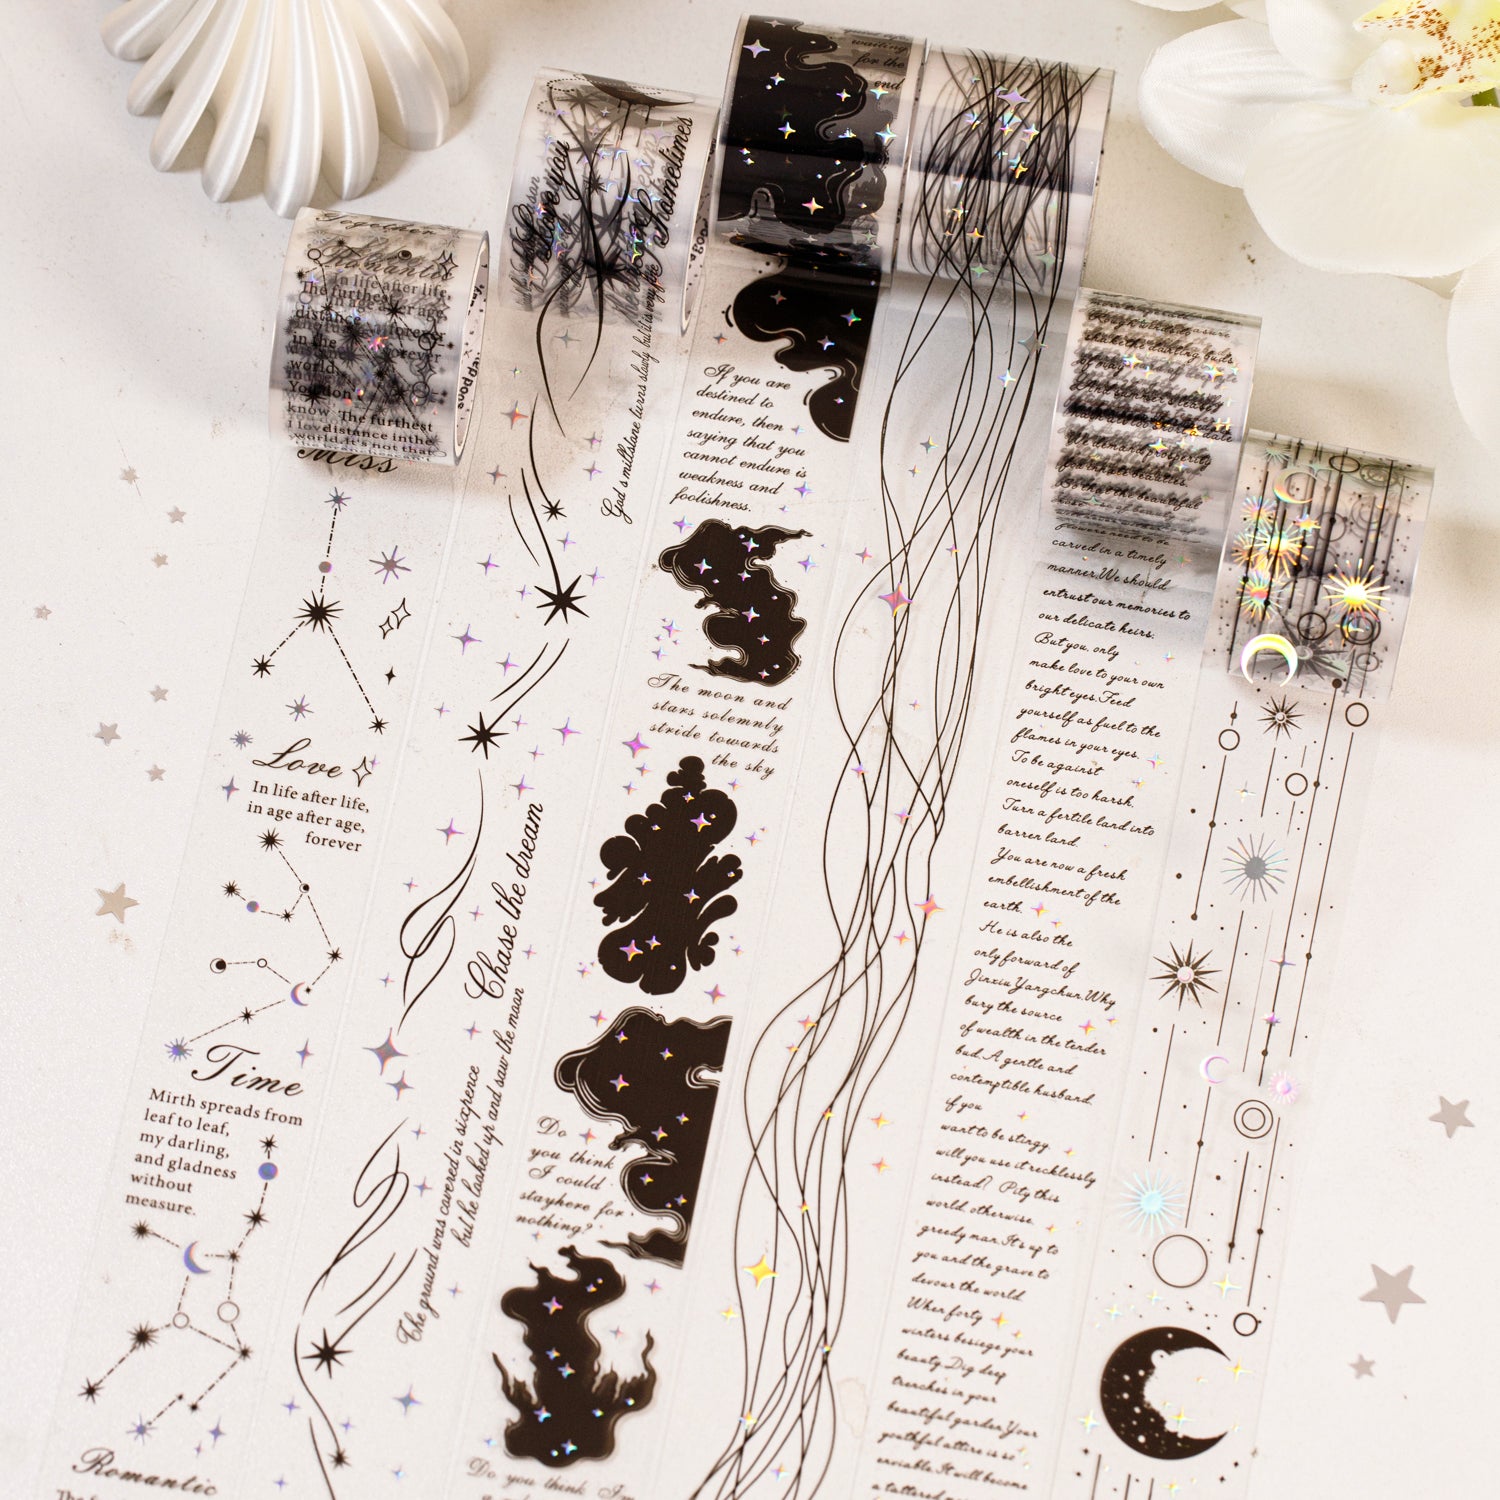 Miss
Love
In life after life,
in age after age,
forever
Time
Mirth spreads from
leaf to leaf,
my darling,
and gladness
without
measure.
Romantic
Together
Romantic
In life after life,
The furthest
distance
in the
world.
know The furthest
distance in the
world. It's not that
forever
love you
Sometimes
God's millstone turns slowly but it is very fine
Chase the dream
The ground was covered in sixpence
but he looked up and saw the moon
waiting
for the
end
If you are
destined to
endure, then
saying that you
cannot endure is
weakness and
foolishness.
The moon and
stars solemnly
stride towards
the sky
Do
you think
I could
stayhere for
nothing?
Do you think I'm
carved in a timely
manner.We should
entrust our memories to
our delicate heirs.
But you, only
make love to your own
bright eyes.Feed
yourself as fuel to the
flames in your eyes.
To be against
oneself is too harsh.
Turn a fertile land into
barren land.
You are now a fresh
embellishment of the
earth.
He is also the
only forward of
Jinxiu Yangchun.Why
bury the source
of wealth in the tender
bud.A gentle and
contemptible husband.
if you
want to be stingy.
will you use it recklessly
instead? Pity this
world, otherwise.
greedy man.It's up to
you and the grave to
devour the world.
When forty
winters besiege your
beauty.Dig deep
trenches in your
beautiful garden.Your
youthful attire is so
enviable.It will become